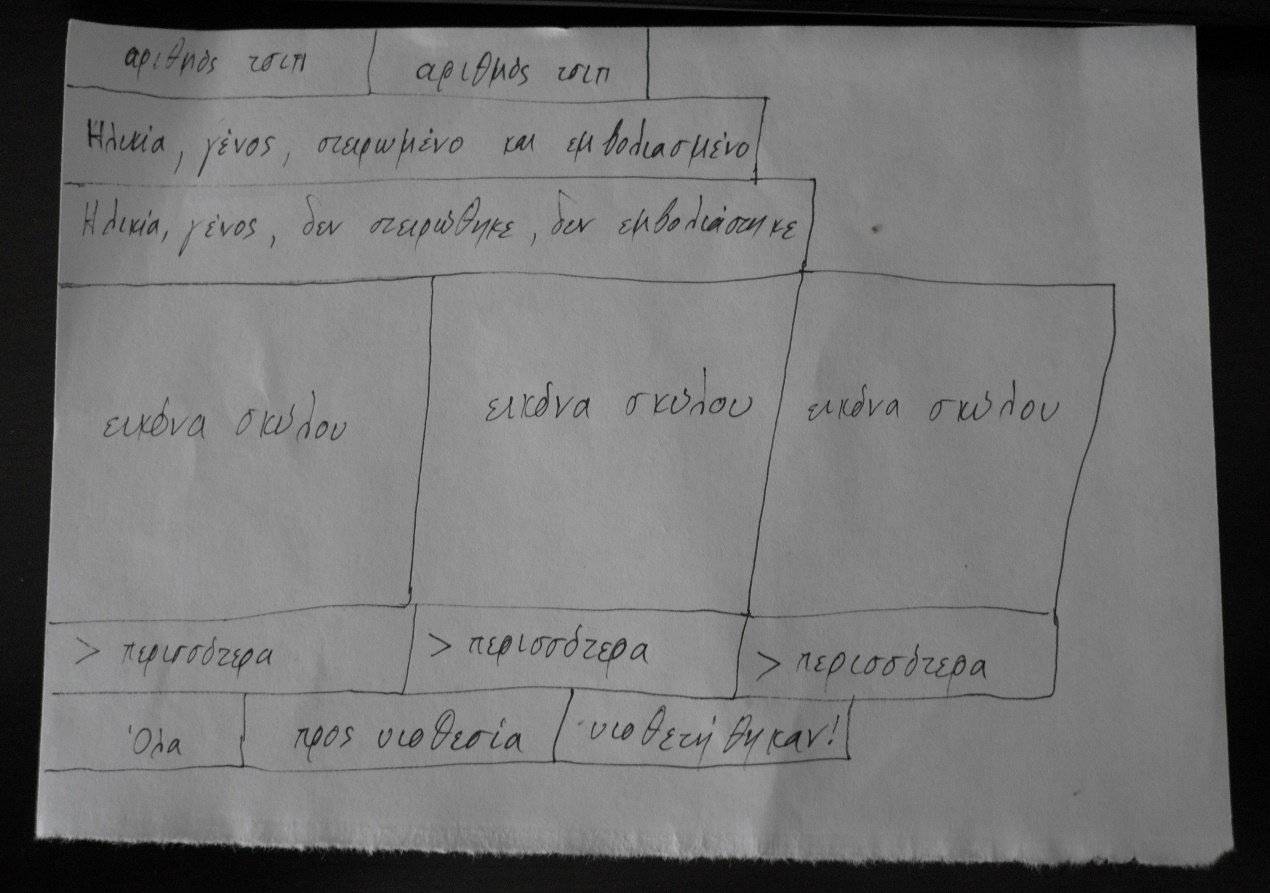 αριθμός τσιπ αριθμός τσιπ
Ηλικία, γένος, στειρωμένο και εμβολιασμένο
Ηλικία, γένος, δεν στειρώθηκε, δεν εμβολιάστηκε
εικόνα σκύλου εικόνα σκύλου εικόνα σκύλου
> περισσότερα > περισσότερα > περισσότερα
Όλα προς υιοθεσία υιοθετήθηκαν!